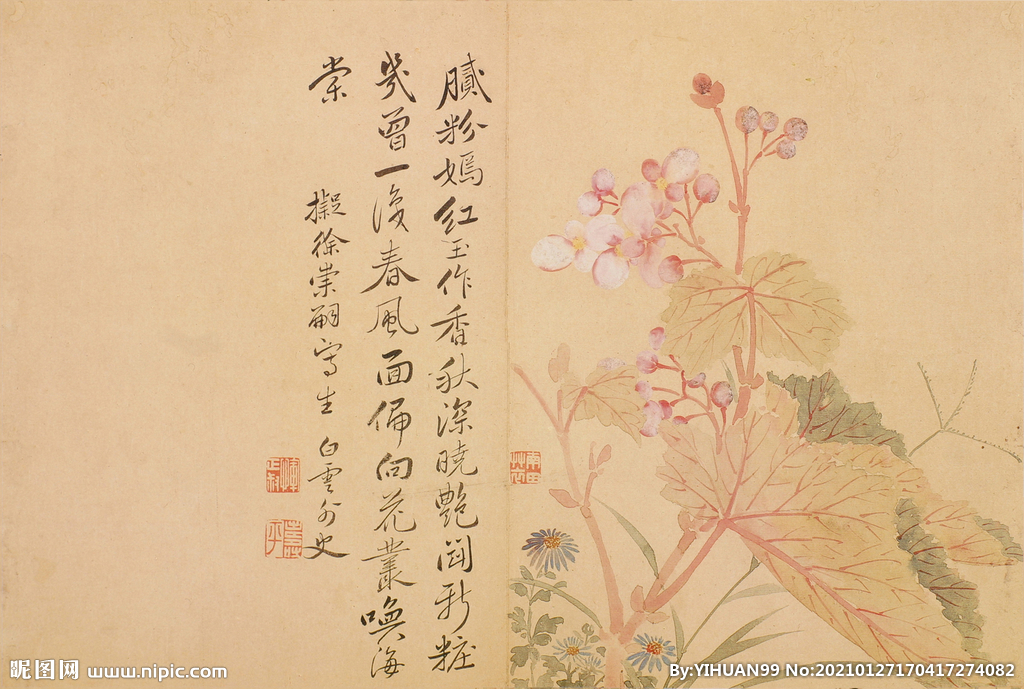 膩粉嫣紅玉作香秋深曉艷鬪新粧
幾曾一復春風面偏向花叢喚海
棠
擬徐崇嗣寫生 白雲外史
惲
正叔
壽
平
南田
昵图网 www.nipic.com
By:YIHUAN99 No:20210127170417274082